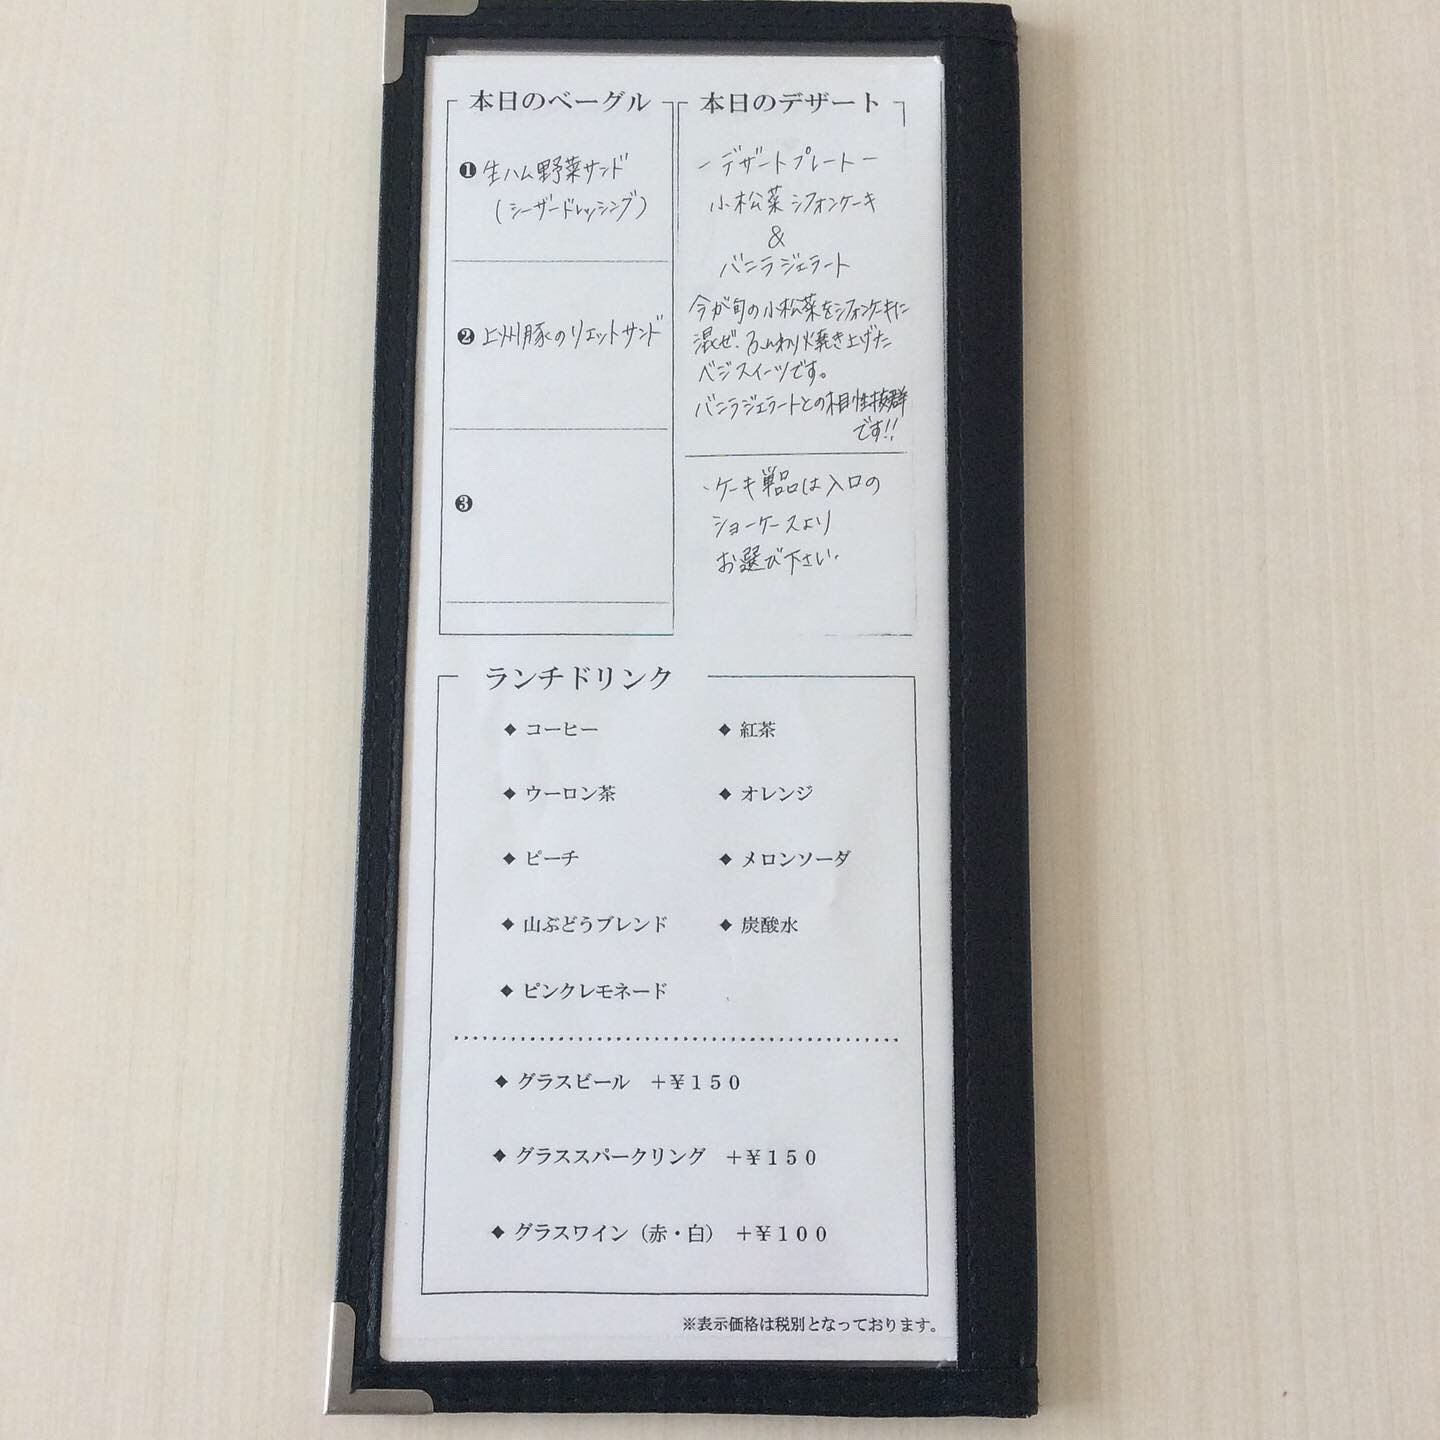 本日のベーグル
❶ 生ハム野菜サンド
(シーザードレッシング)
❷ 上州豚のリエットサンド
❸
本日のデザート
ー デザートプレート ー
小松菜シフォンケーキ
&
バニラジェラート
今が旬の小松菜をシフォンケーキに
混ぜ、ふんわり焼き上げた
ベジスイーツです。
バニラジェラートとの相性抜群
です!!
・ケーキ単品は入口の
ショーケースより
お選び下さい。
ランチドリンク
◆ コーヒー ◆ 紅茶
◆ ウーロン茶 ◆ オレンジ
◆ ピーチ ◆ メロンソーダ
◆ 山ぶどうブレンド ◆ 炭酸水
◆ ピンクレモネード
◆ グラスビール +¥150
◆ グラススパークリング +¥150
◆ グラスワイン（赤・白） +¥100
※表示価格は税別となっております。